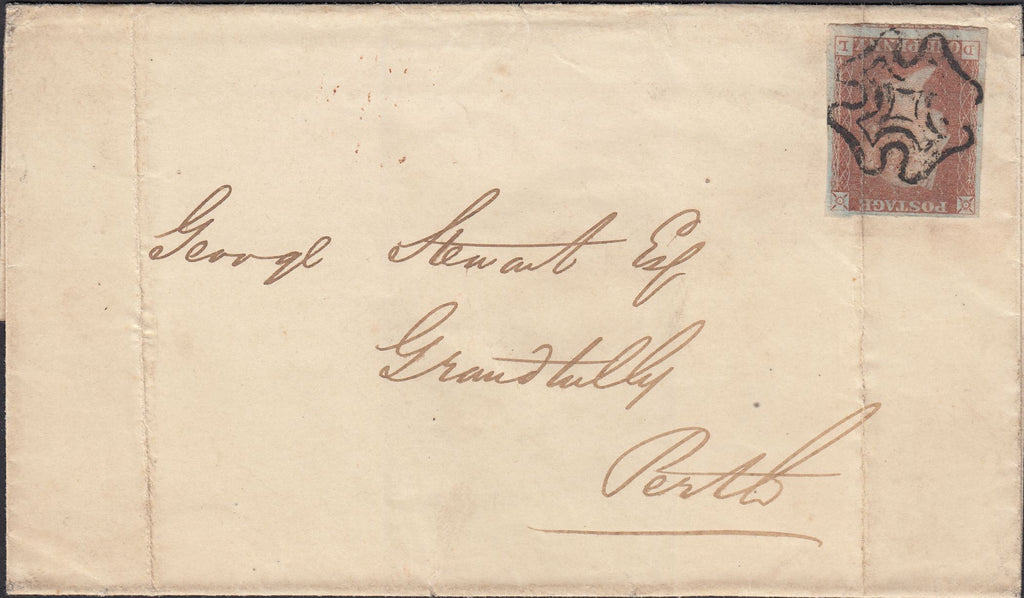 POSTAGE
ONE PENNY
D L
George Stewart Esq
Grandtully
Perth